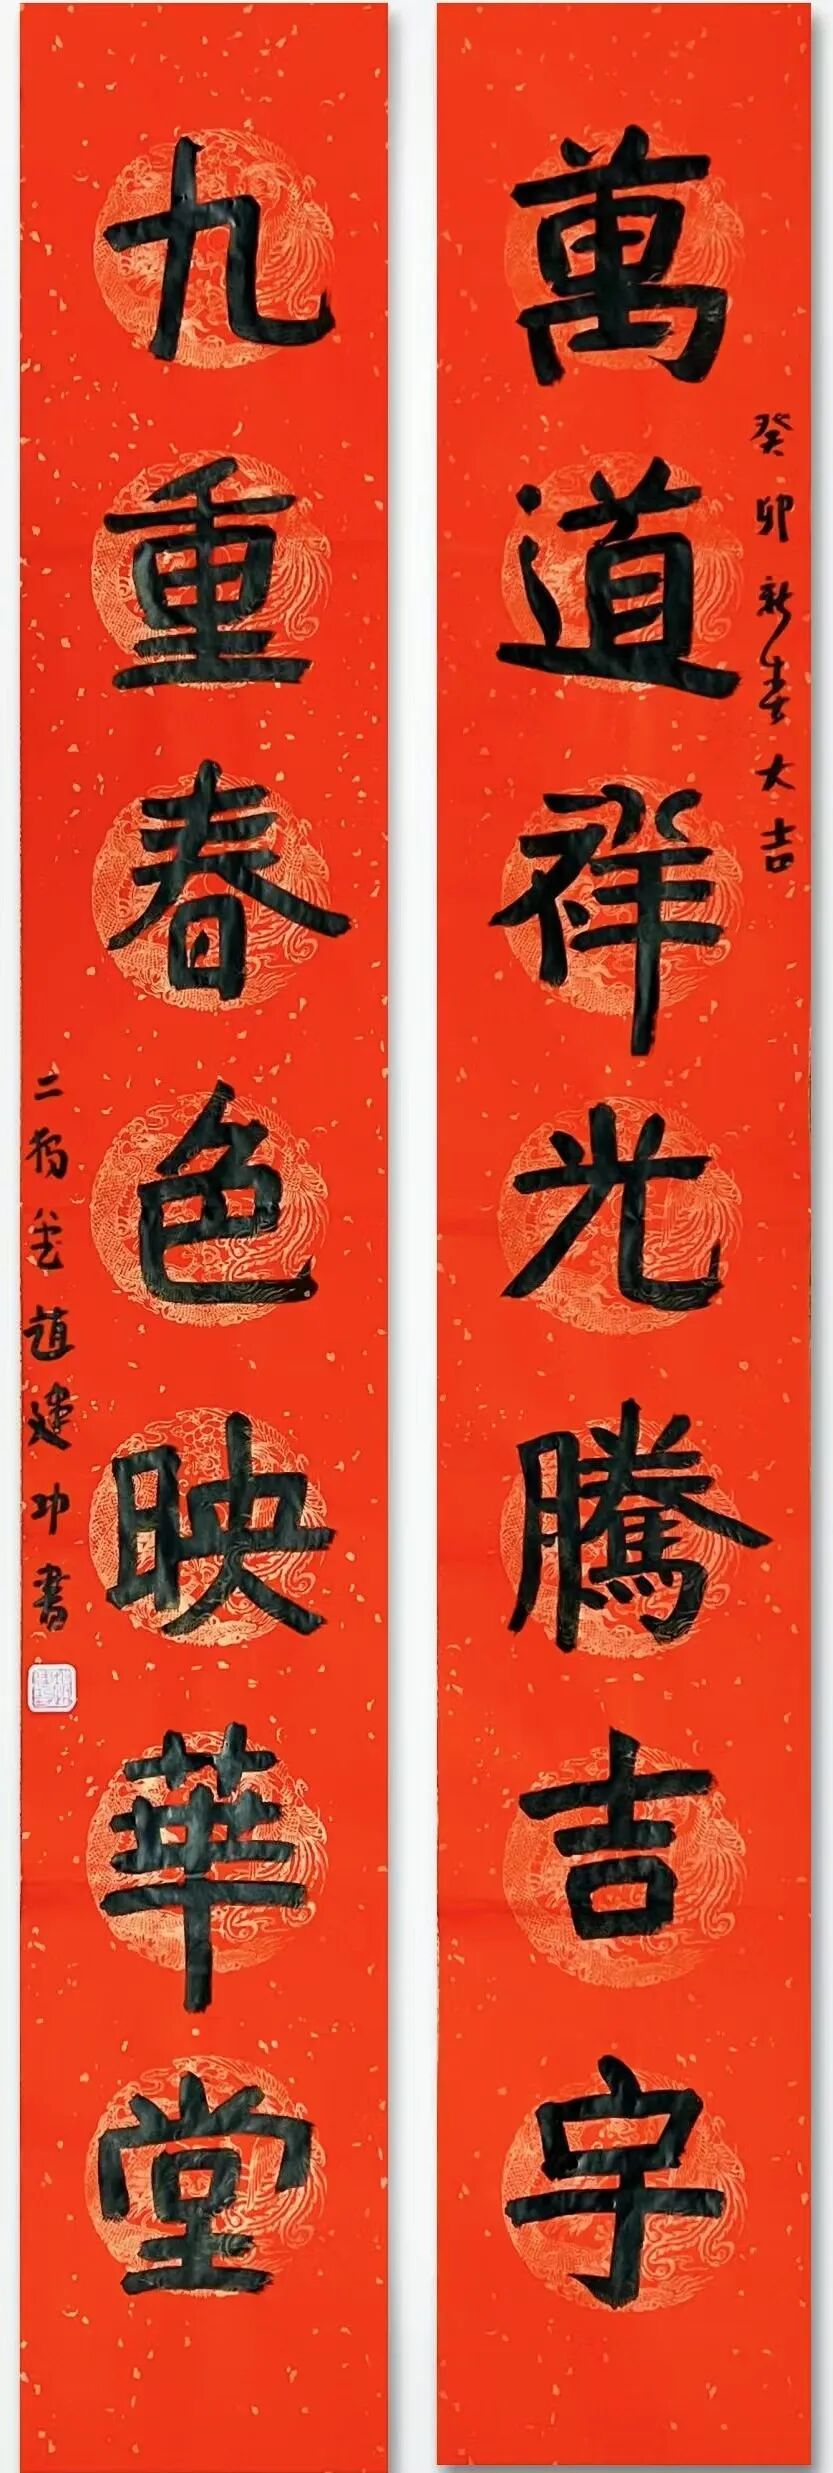 萬道祥光騰吉宇
癸卯新春大吉
九重春色映華堂
趙建功書